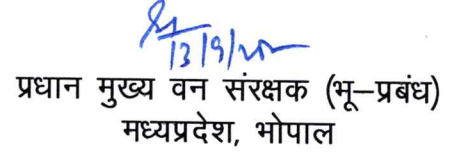 13/9/
प्रधान मुख्य वन संरक्षक (भू–प्रबंध)
मध्यप्रदेश, भोपाल